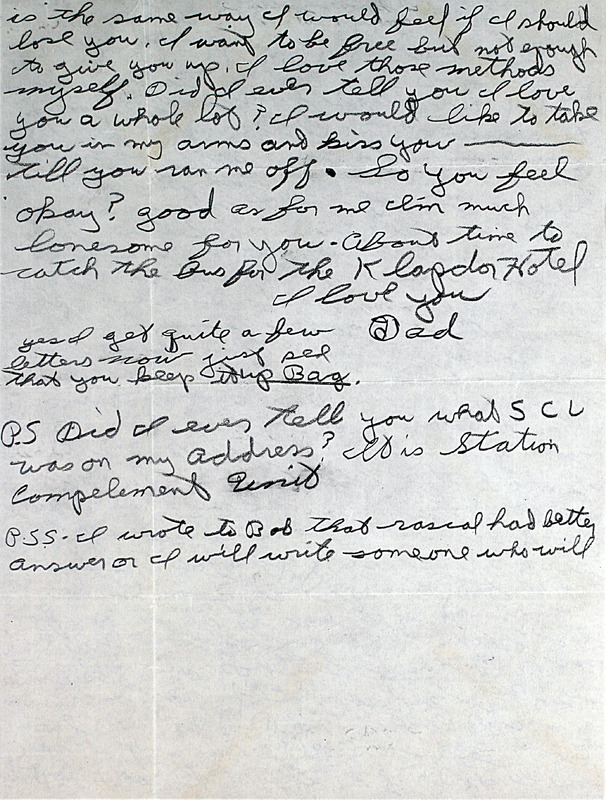 is the same way I would feel if I should
lose you. I want to be free but not enough
to give you up. I love those methods
myself. Did I ever tell you I love
you a whole lot? I would like to take
you in my arms and kiss you ———
till you ran me off. So you feel
okay? good as for me I'm much
lonesome for you. About time to
catch the Bus for the Klapdor Hotel
I love you
Dad
yes I get quite a few
letters now just see
that you keep it up Bag.
P.S Did I ever tell you what S C U
was on my address? It is Station
Compelement Unit
P.S.S. I wrote to Bob that rascal had better
answer or I will write someone who will